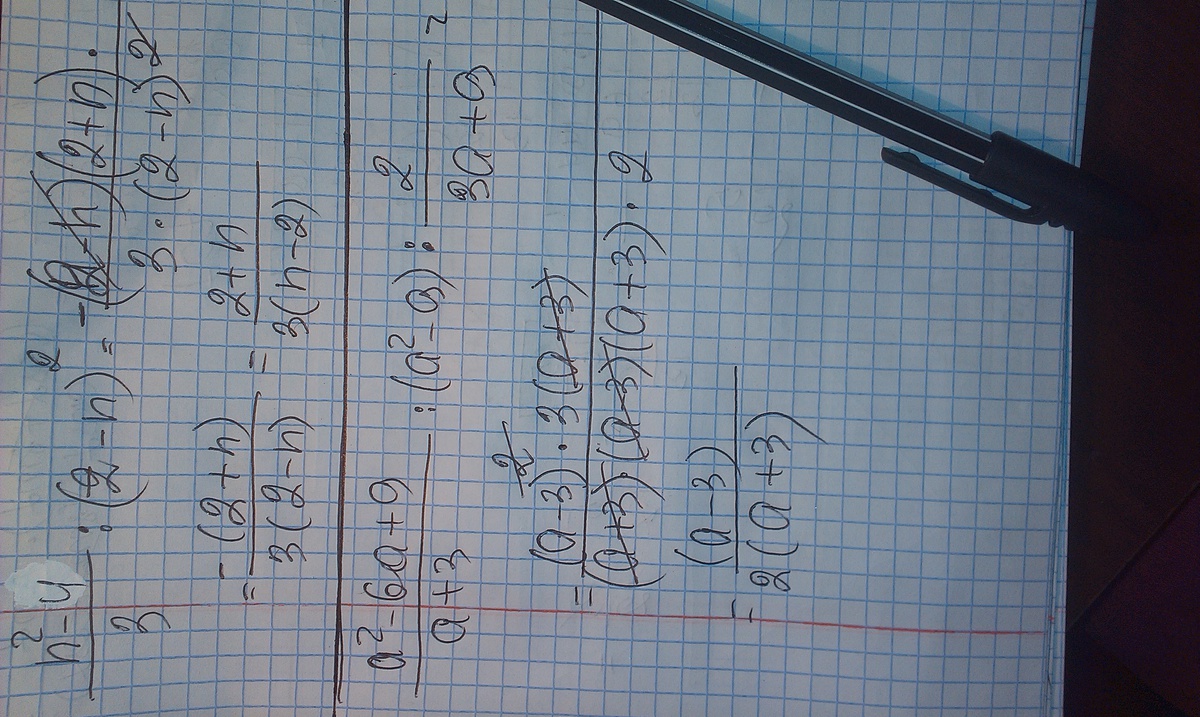 (n² - 4)/3 : (2-n)² = -(2-n)(2+n)·/3·(2-n)²
= -(2+n)/3(2-n) = 2+n/3(n-2)
(a² - 6a + 9)/(a+3) : (a² - 9) : 2/(3a+9) =
= (a-3)²·3(a+3)/(a+3)(a-3)(a+3)·2
= (a-3)/2(a+3)